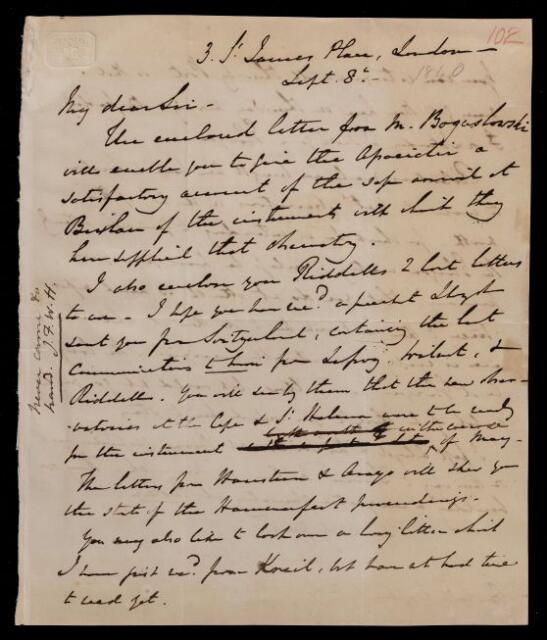 102
3 St James Place, London -
Sept. 8th 1840
My dear Sir -
The enclosed letter from M. Boguslowski
will enable you to give the Association a
satisfactory account of the safe arrival at
Breslau of the instruments with which they
have supplied that observatory.
I also enclose you Riddell's 2 last letters
to me - I hope you have recd a packet Lloyd
sent you from Switzerland, containing the last
communications to him from Lefroy, Wilmot, &
Riddell. You will see by them that the new obser-
vatories at the Cape & St Helena were to be ready
for the instruments in the course of May.
The letters from Hansteen & Arago will shew you
the state of the Hammerfest proceedings.
You may also like to look over a long letter which
I have just recd from Kreil, but have not had time
to read yet.
Never came to
hand. J.F.W.H.